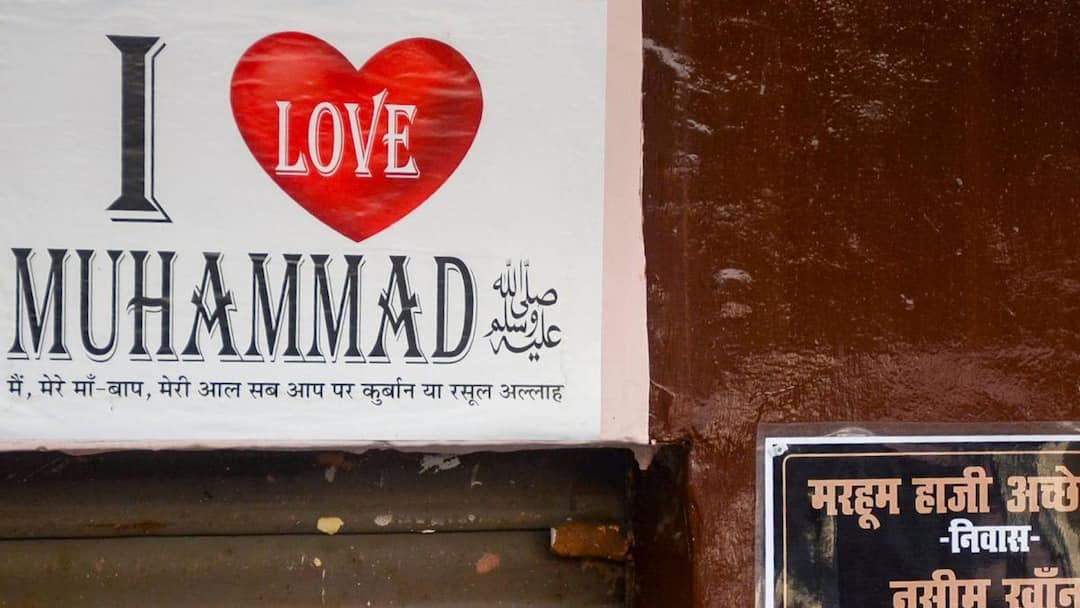 I LOVE
MUHAMMAD صلى الله عليه وسلم
मैं, मेरे माँ-बाप, मेरी आल सब आप पर कुर्बान या रसूल अल्लाह
मरहूम हाजी अच्छे
-निवास-
नसीम खाँन